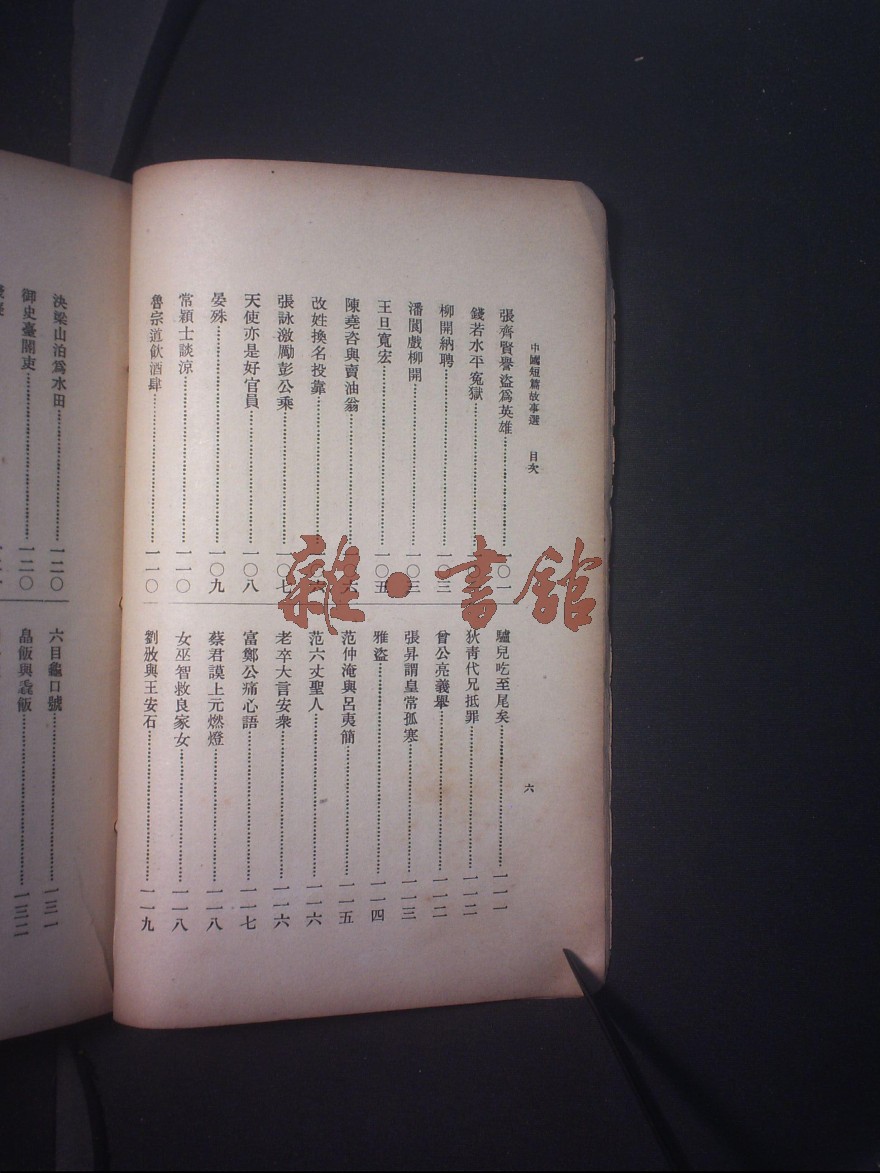 中國短篇故事選 目次
六
張齊賢譽盜爲英雄
錢若水平寃獄
柳開納聘 一〇三
潘閬戲柳開 一〇三
王旦寬宏 一〇五
陳堯咨與賣油翁
改姓換名投靠
張詠激勵彭公乘 一〇七
天使亦是好官員 一〇八
晏殊 一〇九
常穎士談涼 一一〇
魯宗道飮酒肆 一一〇
驢兒吃至尾矣 一一一
狄靑代兄抵罪 一一二
曾公亮義舉 一一二
張昇謂皇帝孤寒 一一三
雅盜 一一四
范仲淹與呂夷簡 一一五
范六丈聖人 一一六
老卒大言安衆 一一六
富鄭公痛心語 一一七
蔡君謨上元燃燈 一一八
女巫智救良家女 一一八
劉攽與王安石 一一九
決梁山泊爲水田 一二〇
御史臺閽吏 一二〇
六目龜口號 一三一
皛飯與毳飯 一三二
雜·書館